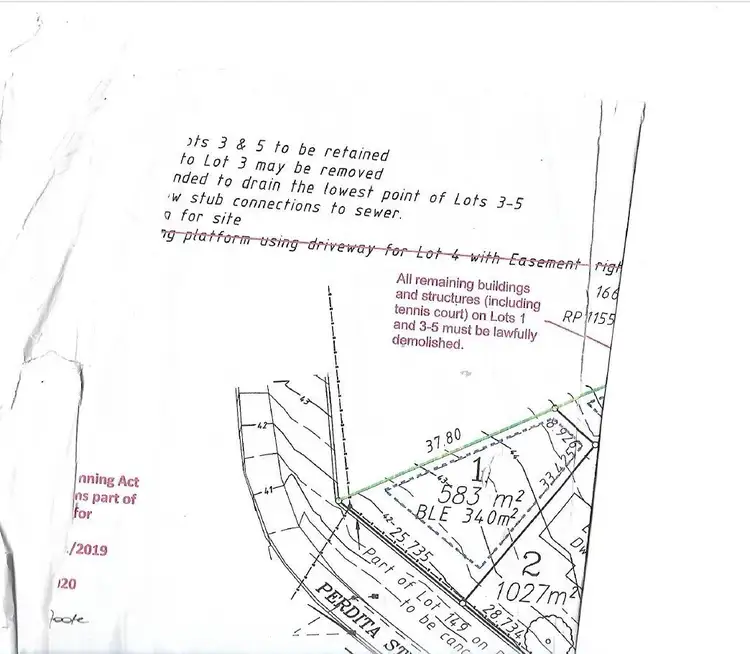 ots 3 & 5 to be retained
to Lot 3 may be removed
nded to drain the lowest point of Lots 3-5
w stub connections to sewer.
a for site
ng platform using driveway for Lot 4 with Easement righ
All remaining buildings
and structures (including
tennis court) on Lots 1
and 3-5 must be lawfully
demolished.
166
RP 1155
43
42
41
37.80
8.926
33.425
1
583 m²
BLE 340m²
43
44
42
25.735
2
1027m²
28.734
Part of Lot 149 on
to be canc
PERDITA ST
nning Act
ns part of
for
/2019
020